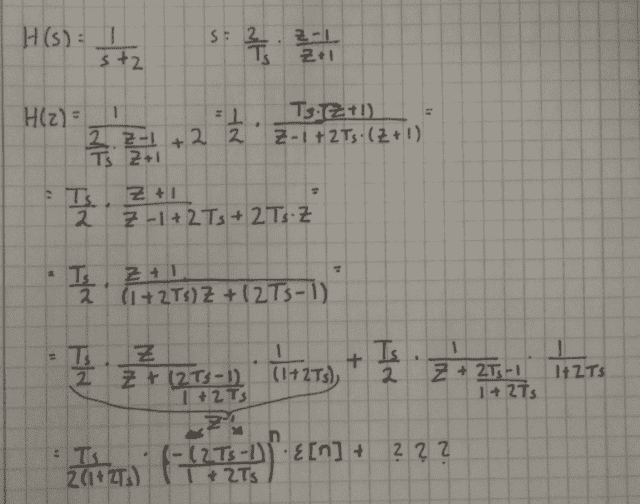 H(s) = 1/(s+2)    s = 2/Ts · (z-1)/(z+1)
H(z) = 1/(2/Ts · (z-1)/(z+1) + 2) = 1/2 · Ts·(z+1)/(z-1+2Ts·(z+1)) =
= Ts/2 · (z+1)/(z-1+2Ts+2Ts·z) =
= Ts/2 · (z+1)/((1+2Ts)z+(2Ts-1)) =
= Ts/2 · z/(z+(2Ts-1)/(1+2Ts)) · 1/(1+2Ts) + Ts/2 · 1/(z+(2Ts-1)/(1+2Ts)) · 1/(1+2Ts)
= Ts/(2(1+2Ts)) · (-(2Ts-1)/(1+2Ts))^n · ε[n] + ???